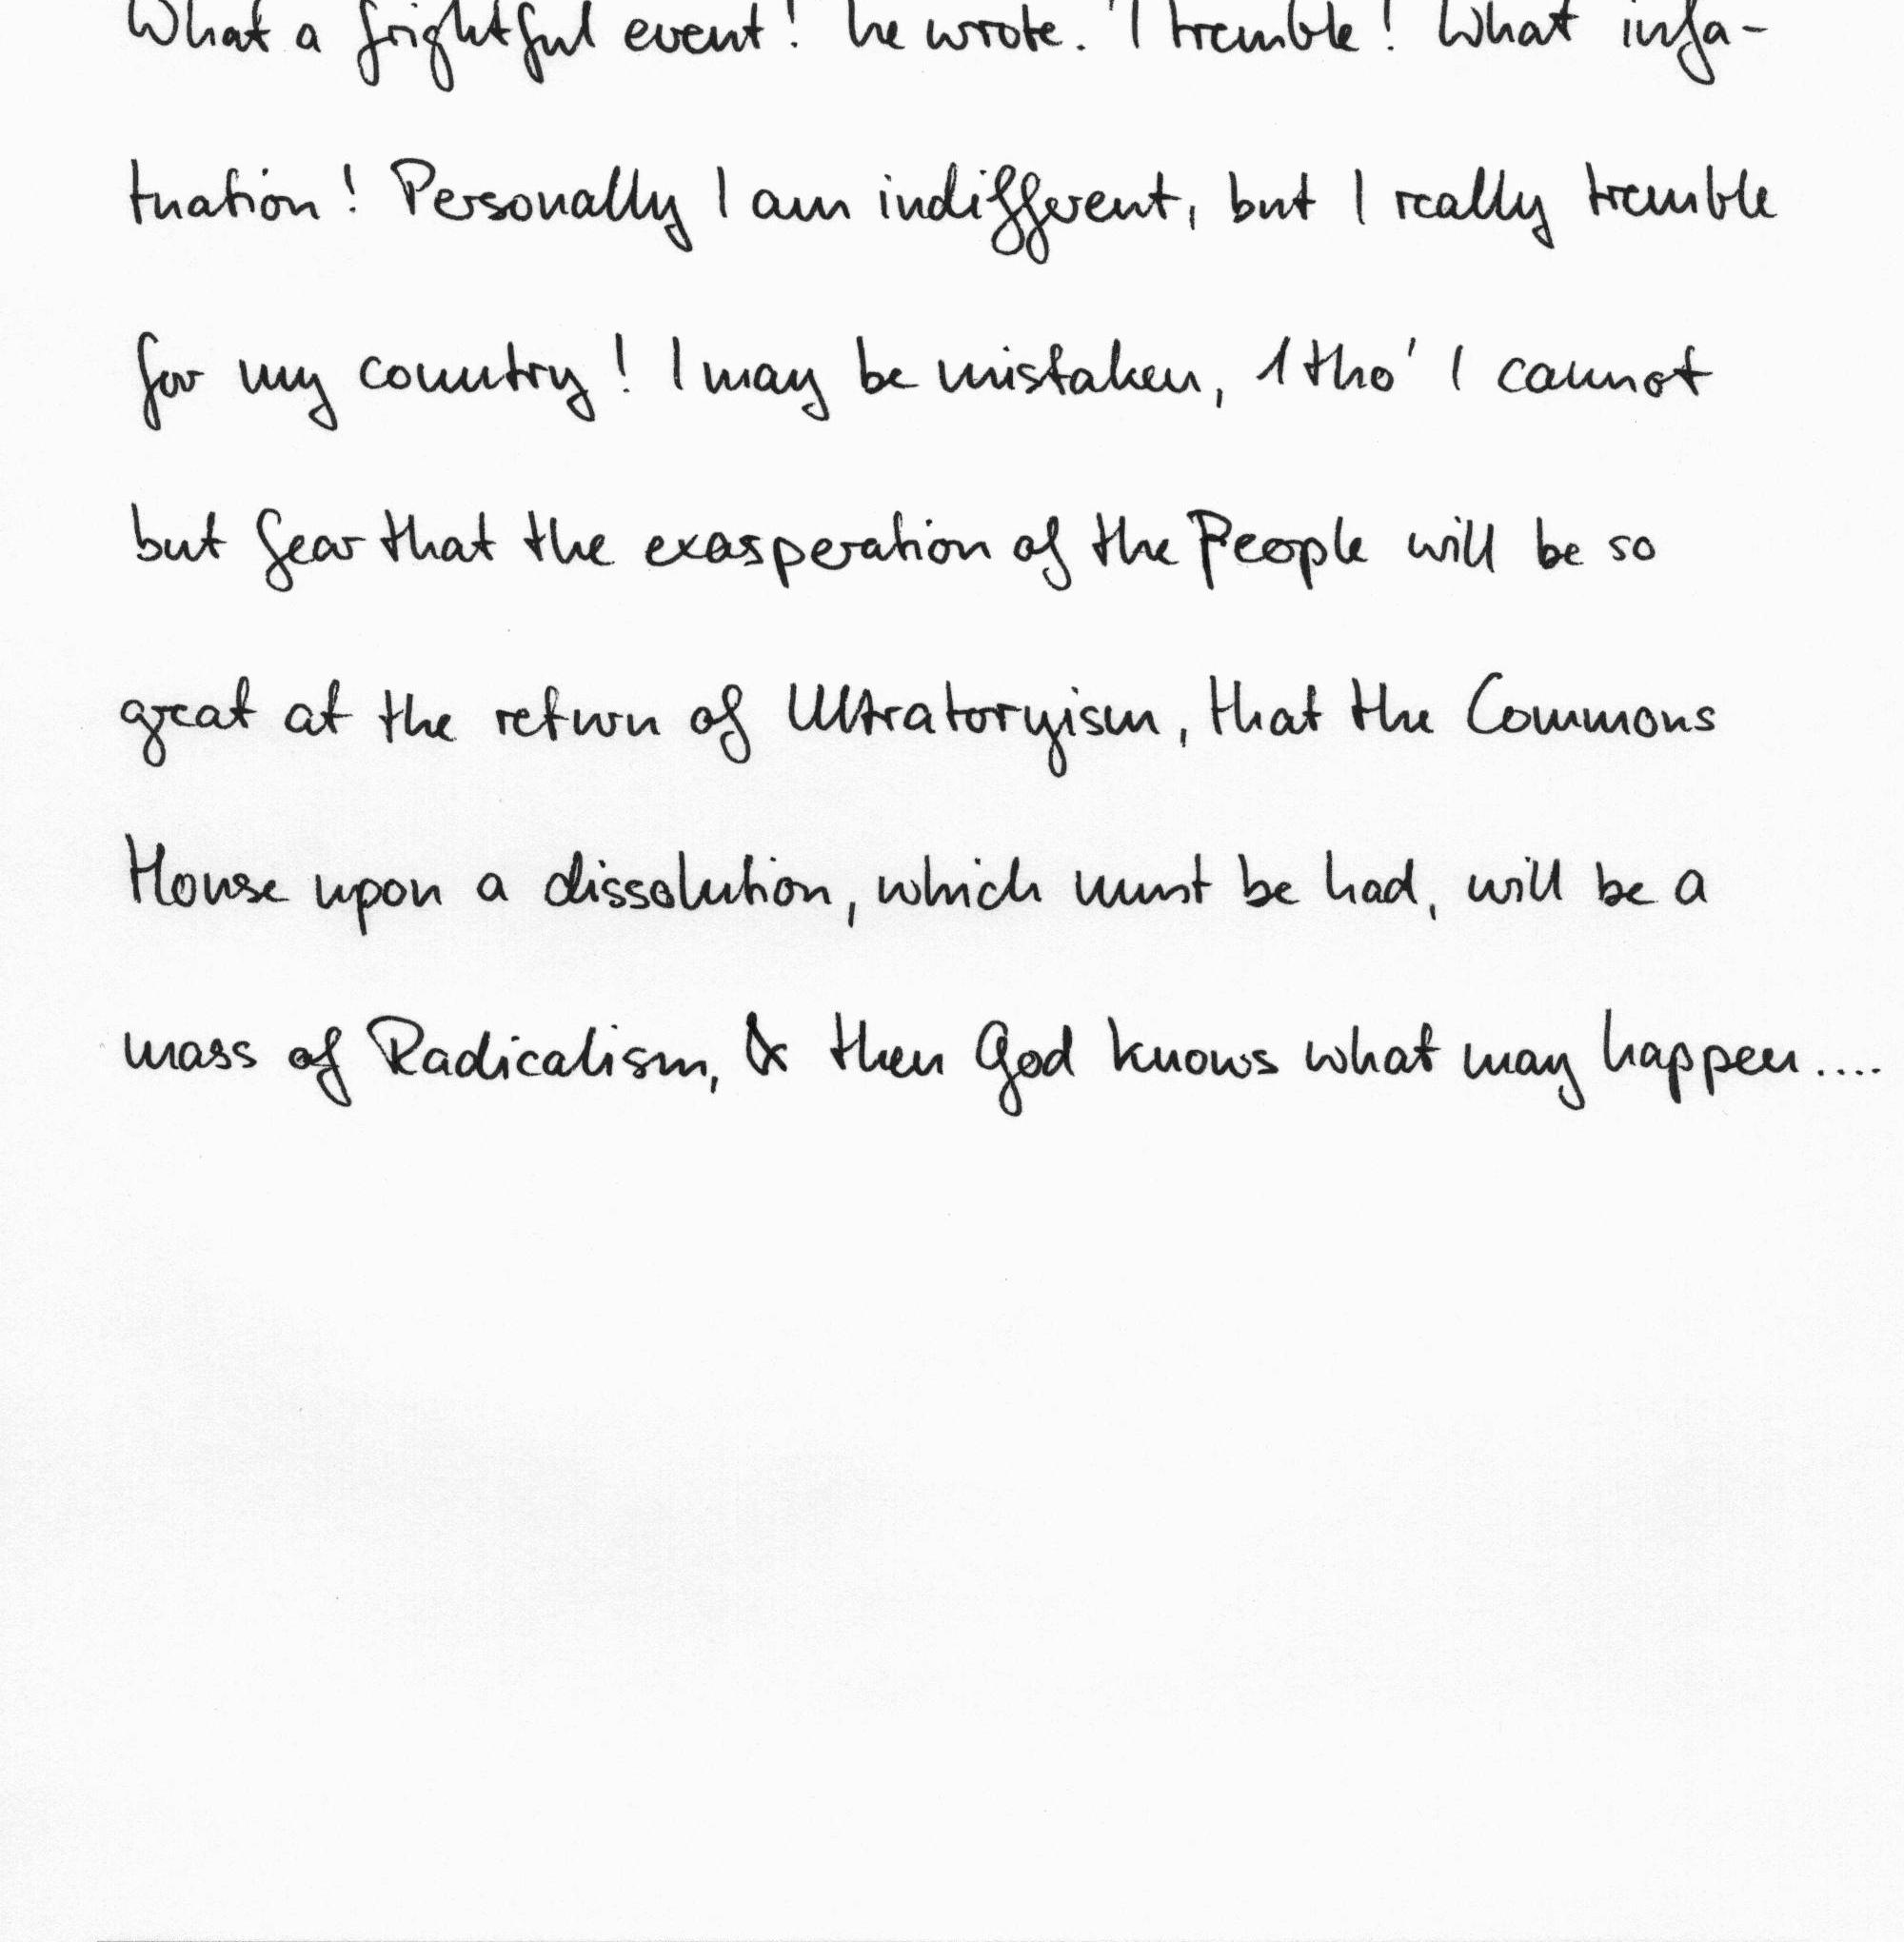 What a frightful event! he wrote. 'I tremble! What infa-
tuation! Personally I am indifferent, but I really tremble
for my country! I may be mistaken, 1tho' I cannot
but fear that the exasperation of the People will be so
great at the return of Ultratoryism, that the Commons
House upon a dissolution, which must be had, will be a
mass of Radicalism, & then God knows what may happen....